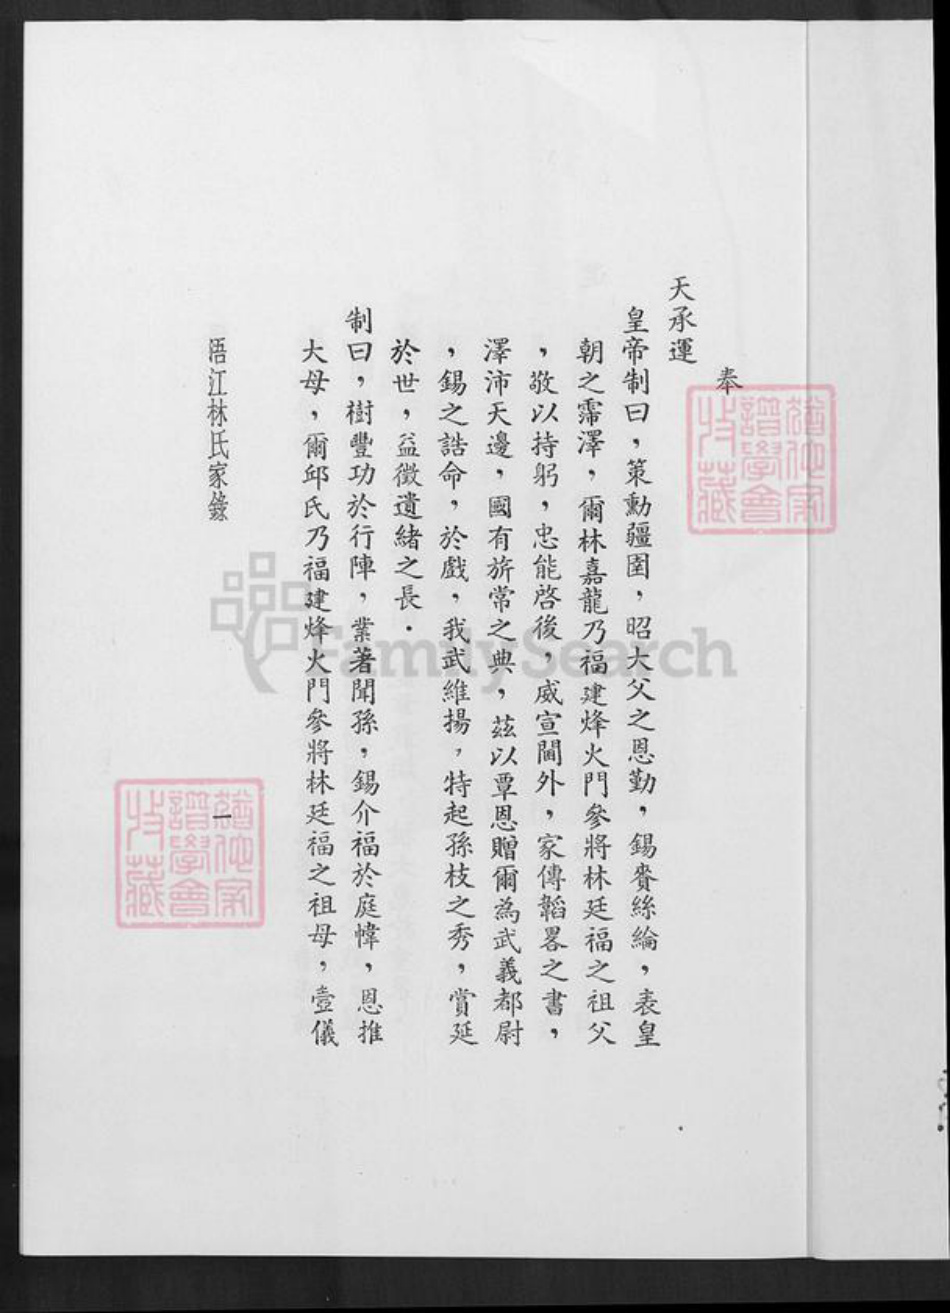 奉
天承運
皇帝制曰，策勳疆圉，昭大父之恩勤，錫賚絲綸，表皇
朝之霈澤，爾林嘉龍乃福建烽火門參將林廷福之祖父
，敬以持躬，忠能啓後，威宣閫外，家傳韜畧之書，
澤沛天邊，國有旂常之典，茲以覃恩贈爾為武義都尉
，錫之誥命，於戲，我武維揚，特起孫枝之秀，賞延
於世，益徵遺緒之長．
制曰，樹豐功於行陣，業著聞孫，錫介福於庭幃，恩推
大母，爾邱氏乃福建烽火門參將林廷福之祖母，壼儀
浯江林氏家錄
一
FamilySearch
譜學會
收藏
譜學會
收藏